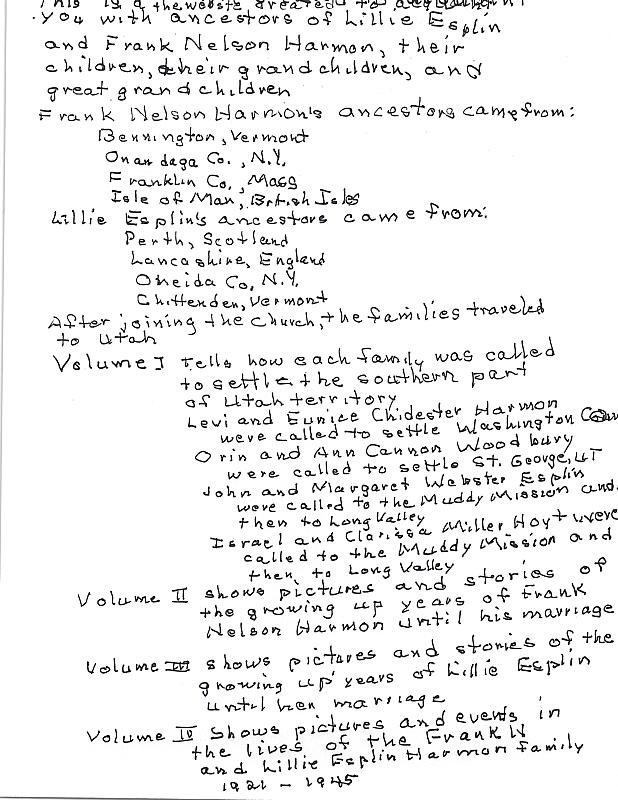 This is a the website created to acquaint
you with ancestors of Lillie Esplin
and Frank Nelson Harmon, their
children, their grandchildren, and
great grandchildren
Frank Nelson Harmon's ancestors came from:
Bennington, Vermont
Onandaga Co., N.Y.
Franklin Co., Mass
Isle of Man, British Isles
Lillie Esplin's ancestors came from:
Perth, Scotland
Lancashire, England
Oneida Co, N.Y.
Chittenden, Vermont
After joining the church, the families traveled
to Utah
Volume I tells how each family was called
to settle the southern part
of Utah territory
Levi and Eunice Chidester Harmon
were called to settle Washington Coun
Orin and Ann Cannon Woodbury
were called to settle St. George, UT
John and Margaret Webster Esplin
were called to the Muddy Mission and
then to Long Valley
Israel and Clarissa Miller Hoyt were
called to the Muddy Mission and
then to Long Valley
Volume II shows pictures and stories of
the growing up years of Frank
Nelson Harmon until his marriage
Volume III shows pictures and stories of the
growing up years of Lillie Esplin
until her marriage
Volume IV shows pictures and events in
the lives of the Frank N
and Lillie Esplin Harmon family
1921 - 1945